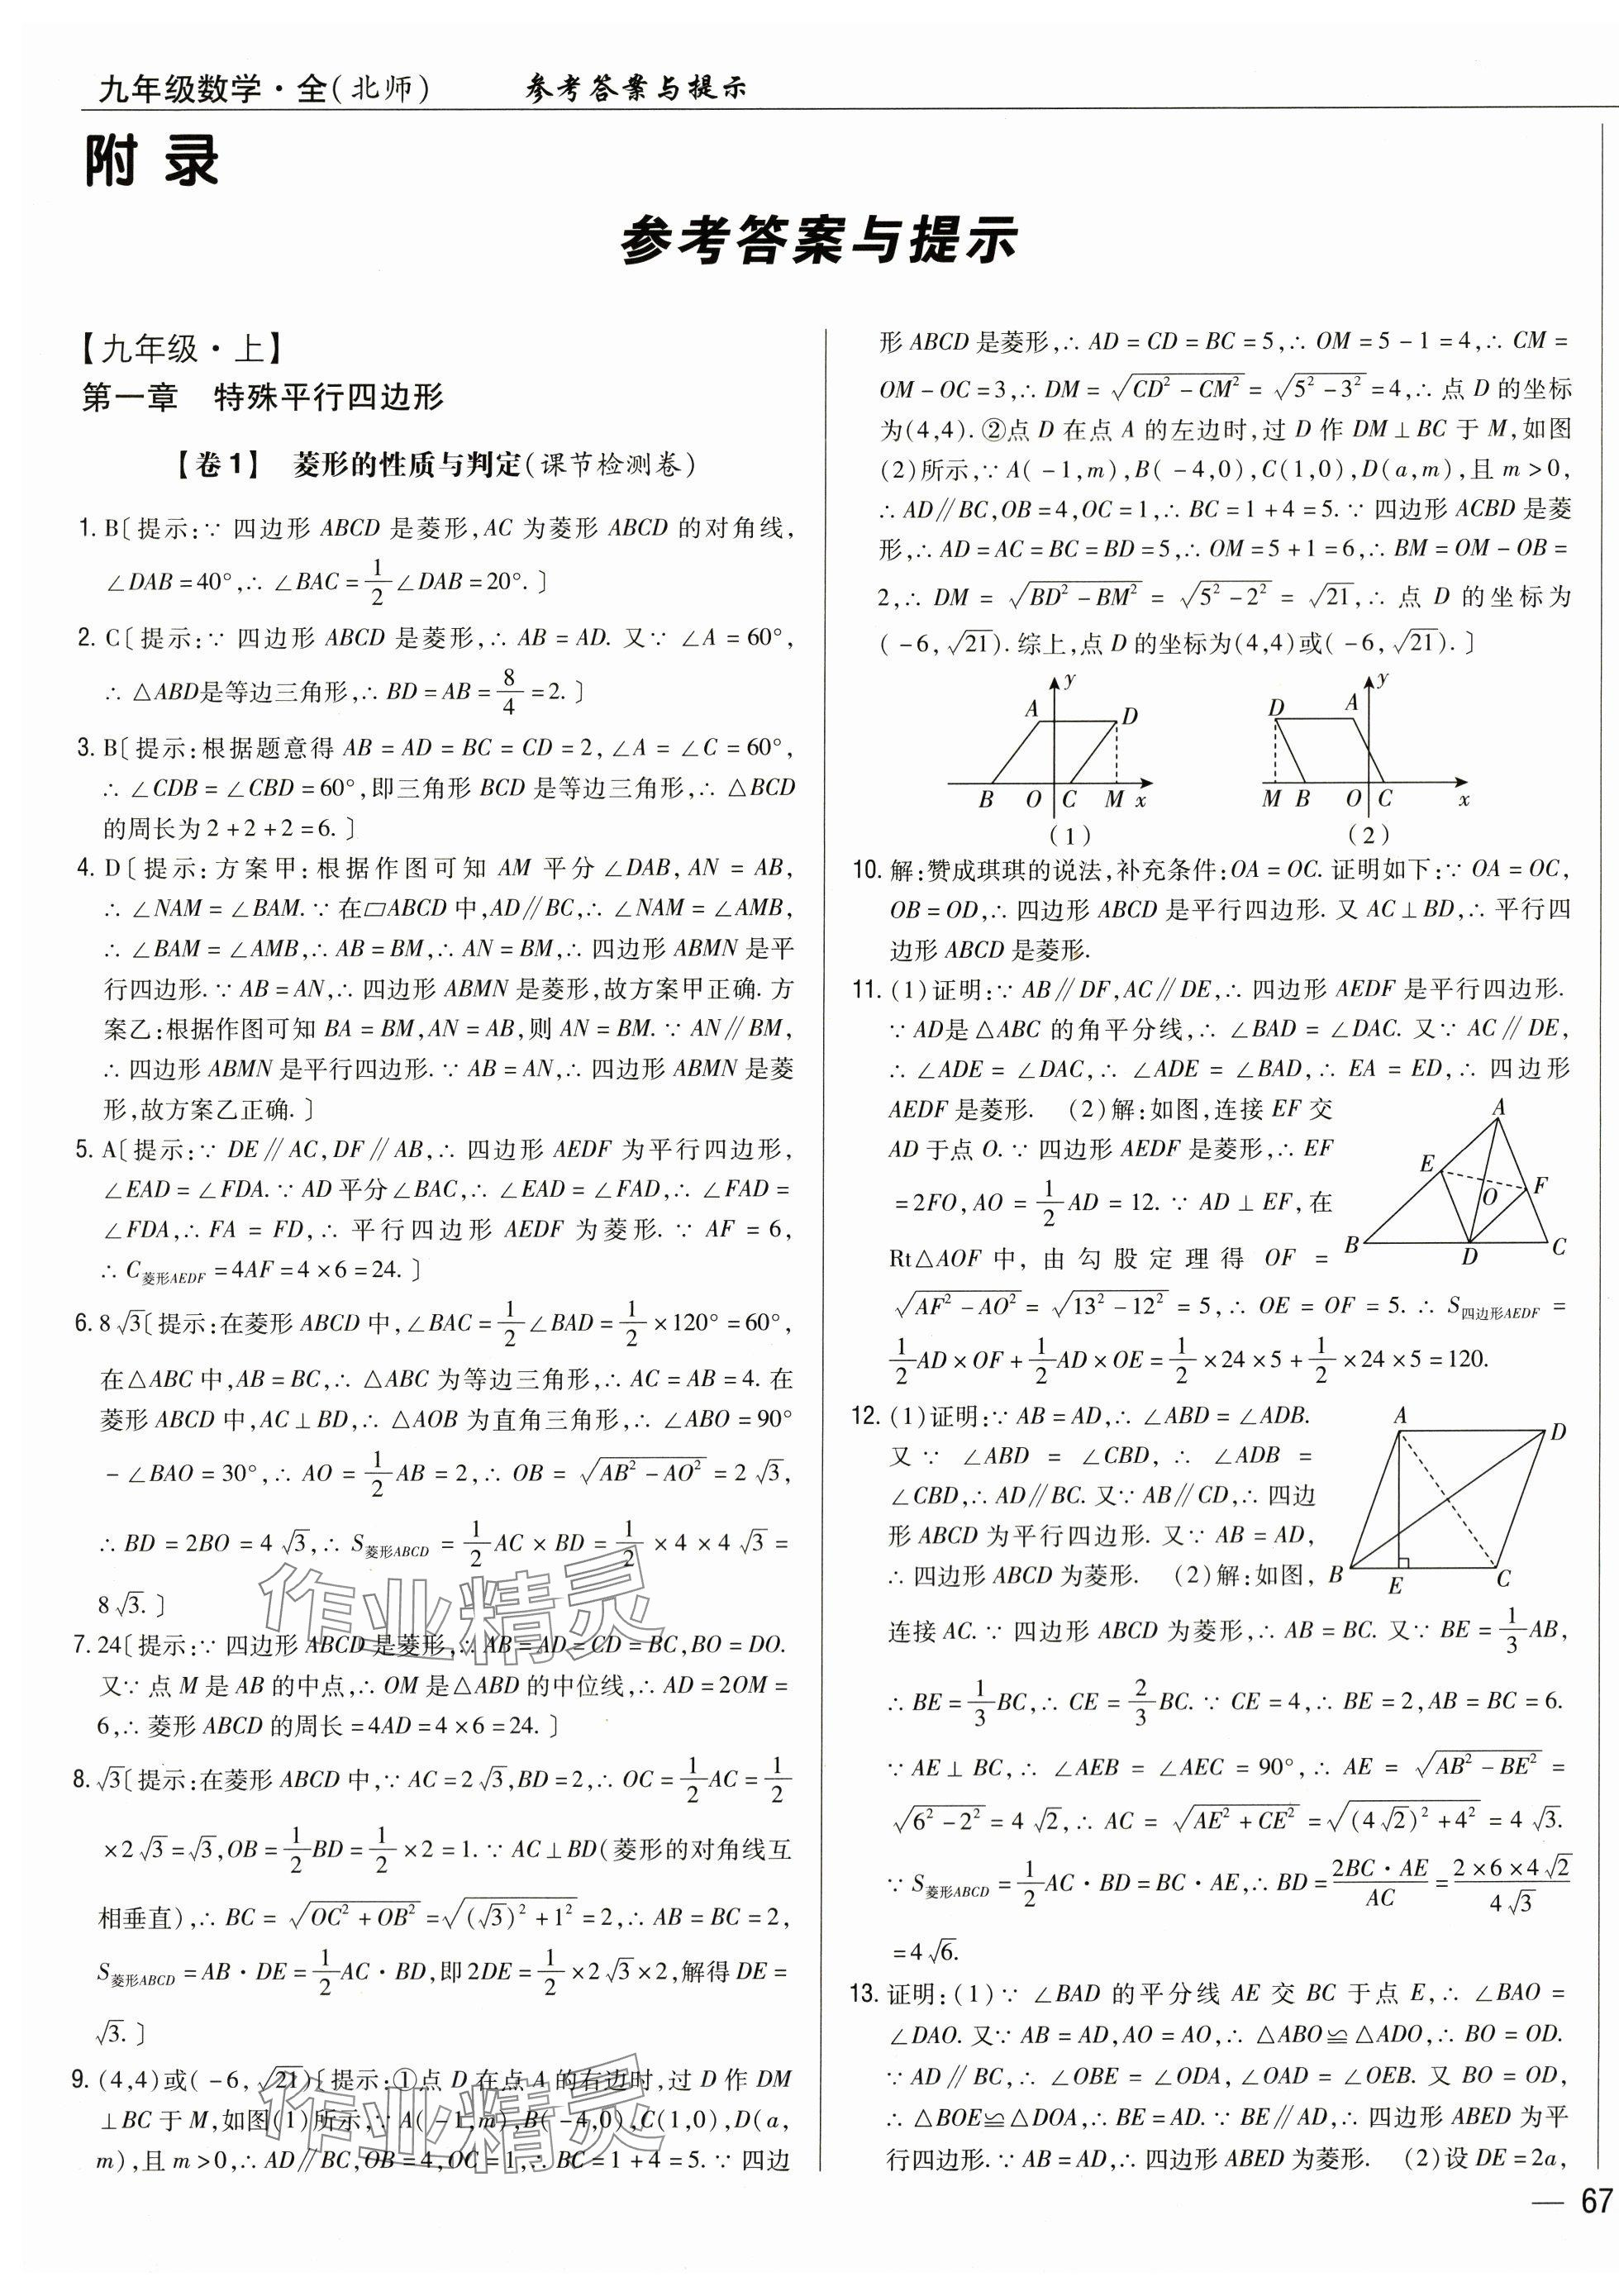 九年级数学·全(北师) 参考答案与提示
附 录
参考答案与提示
【九年级·上】
第一章 特殊平行四边形
【卷1】 菱形的性质与判定(课节检测卷)
1. B〔提示:∵ 四边形 ABCD 是菱形,AC 为菱形 ABCD 的对角线,
∠DAB=40°,∴ ∠BAC=1/2∠DAB=20°.〕
2. C〔提示:∵ 四边形 ABCD 是菱形,∴ AB=AD. 又∵ ∠A=60°,
∴ △ABD是等边三角形,∴ BD=AB=8/4=2.〕
3. B〔提示:根据题意得 AB=AD=BC=CD=2,∠A=∠C=60°,
∴ ∠CDB=∠CBD=60°,即三角形 BCD 是等边三角形,∴ △BCD
的周长为2+2+2=6.〕
4. D〔提示:方案甲:根据作图可知 AM 平分∠DAB,AN=AB,
∴ ∠NAM=∠BAM.∵ 在▱ABCD 中,AD∥BC,∴ ∠NAM=∠AMB,
∴ ∠BAM=∠AMB,∴ AB=BM,∴ AN=BM,∴ 四边形 ABMN 是平
行四边形.∵ AB=AN,∴ 四边形 ABMN 是菱形,故方案甲正确. 方
案乙:根据作图可知 BA=BM,AN=AB,则 AN=BM.∵ AN∥BM,
∴ 四边形 ABMN 是平行四边形.∵ AB=AN,∴ 四边形 ABMN 是菱
形,故方案乙正确.〕
5. A〔提示:∵ DE∥AC,DF∥AB,∴ 四边形 AEDF 为平行四边形,
∠EAD=∠FDA.∵ AD 平分∠BAC,∴ ∠EAD=∠FAD,∴ ∠FAD=
∠FDA,∴ FA=FD,∴ 平行四边形 AEDF 为菱形.∵ AF=6,
∴ C菱形AEDF=4AF=4×6=24.〕
6. 8√3〔提示:在菱形 ABCD 中,∠BAC=1/2∠BAD=1/2×120°=60°,
在△ABC 中,AB=BC,∴ △ABC 为等边三角形,∴ AC=AB=4. 在
菱形 ABCD 中,AC⊥BD,∴ △AOB 为直角三角形,∴ ∠ABO=90°
-∠BAO=30°,∴ AO=1/2AB=2,∴ OB=√(AB²-AO²)=2√3,
∴ BD=2BO=4√3,∴ S菱形ABCD=1/2AC×BD=1/2×4×4√3=
8√3.〕
7. 24〔提示:∵ 四边形 ABCD 是菱形,∴ AB=AD=CD=BC,BO=DO.
又∵ 点 M 是 AB 的中点,∴ OM 是△ABD 的中位线,∴ AD=2OM=
6,∴ 菱形 ABCD 的周长=4AD=4×6=24.〕
8. √3〔提示:在菱形 ABCD 中,∵ AC=2√3,BD=2,∴ OC=1/2AC=1/2
×2√3=√3,OB=1/2BD=1/2×2=1.∵ AC⊥BD(菱形的对角线互
相垂直),∴ BC=√(OC²+OB²)=√((√3)²+1²)=2,∴ AB=BC=2,
S菱形ABCD=AB·DE=1/2AC·BD,即2DE=1/2×2√3×2,解得 DE=
√3.〕
9. (4,4)或(-6,√21)〔提示:①点 D 在点 A 的右边时,过 D 作 DM
⊥BC 于 M,如图(1)所示,∵ A(-1,m),B(-4,0),C(1,0),D(a,
m),且 m>0,∴ AD∥BC,OB=4,OC=1,∴ BC=1+4=5.∵ 四边
形 ABCD 是菱形,∴ AD=CD=BC=5,∴ OM=5-1=4,∴ CM=
OM-OC=3,∴ DM=√(CD²-CM²)=√(5²-3²)=4,∴ 点 D 的坐标
为(4,4). ②点 D 在点 A 的左边时,过 D 作 DM⊥BC 于 M,如图
(2)所示,∵ A(-1,m),B(-4,0),C(1,0),D(a,m),且 m>0,
∴ AD∥BC,OB=4,OC=1,∴ BC=1+4=5.∵ 四边形 ACBD 是菱
形,∴ AD=AC=BC=BD=5,∴ OM=5+1=6,∴ BM=OM-OB=
2,∴ DM=√(BD²-BM²)=√(5²-2²)=√21,∴ 点 D 的坐标为
(-6,√21). 综上,点 D 的坐标为(4,4)或(-6,√21).〕
y
A D
B O C M x
(1)
y
D A
M B O C x
(2)
10. 解:赞成琪琪的说法,补充条件:OA=OC. 证明如下:∵ OA=OC,
OB=OD,∴ 四边形 ABCD 是平行四边形. 又 AC⊥BD,∴ 平行四
边形 ABCD 是菱形.
11. (1)证明:∵ AB∥DF,AC∥DE,∴ 四边形 AEDF 是平行四边形.
∵ AD是△ABC 的角平分线,∴ ∠BAD=∠DAC. 又∵ AC∥DE,
∴ ∠ADE=∠DAC,∴ ∠ADE=∠BAD,∴ EA=ED,∴ 四边形
AEDF 是菱形. (2)解:如图,连接 EF 交
AD 于点 O.∵ 四边形 AEDF 是菱形,∴ EF
=2FO,AO=1/2AD=12.∵ AD⊥EF,在
Rt△AOF 中,由勾股定理得 OF=
√(AF²-AO²)=√(13²-12²)=5,∴ OE=OF=5.∴ S四边形AEDF=
1/2AD×OF+1/2AD×OE=1/2×24×5+1/2×24×5=120.
A
E
F
O
B D C
12. (1)证明:∵ AB=AD,∴ ∠ABD=∠ADB.
又∵ ∠ABD=∠CBD,∴ ∠ADB=
∠CBD,∴ AD∥BC. 又∵ AB∥CD,∴ 四边
形 ABCD 为平行四边形. 又∵ AB=AD,
∴ 四边形 ABCD 为菱形. (2)解:如图,
A D
B E C
连接 AC.∵ 四边形 ABCD 为菱形,∴ AB=BC. 又∵ BE=1/3AB,
∴ BE=1/3BC,∴ CE=2/3BC.∵ CE=4,∴ BE=2,AB=BC=6.
∵ AE⊥BC,∴ ∠AEB=∠AEC=90°,∴ AE=√(AB²-BE²)=
√(6²-2²)=4√2,∴ AC=√(AE²+CE²)=√((4√2)²+4²)=4√3.
∵ S菱形ABCD=1/2AC·BD=BC·AE,∴ BD=2BC·AE/AC=2×6×4√2/4√3
=4√6.
13. 证明:(1)∵ ∠BAD 的平分线 AE 交 BC 于点 E,∴ ∠BAO=
∠DAO. 又∵ AB=AD,AO=AO,∴ △ABO≌△ADO,∴ BO=OD.
∵ AD∥BC,∴ ∠OBE=∠ODA,∠OAD=∠OEB. 又 BO=OD,
∴ △BOE≌△DOA,∴ BE=AD.∵ BE∥AD,∴ 四边形 ABED 为平
行四边形.∵ AB=AD,∴ 四边形 ABED 为菱形. (2)设 DE=2a,
— 67
作业精灵
作业精灵